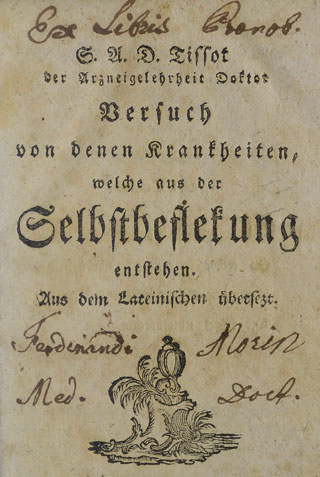 Ex Libris Pronob.
S. A. D. Tissot
der Arzneigelehrheit Doktor
Versuch
von denen Krankheiten,
welche aus der
Selbstbeflekung
entstehen.
Aus dem Lateinischen übersezt.
Ferdinandi Morin
Med. Doct.